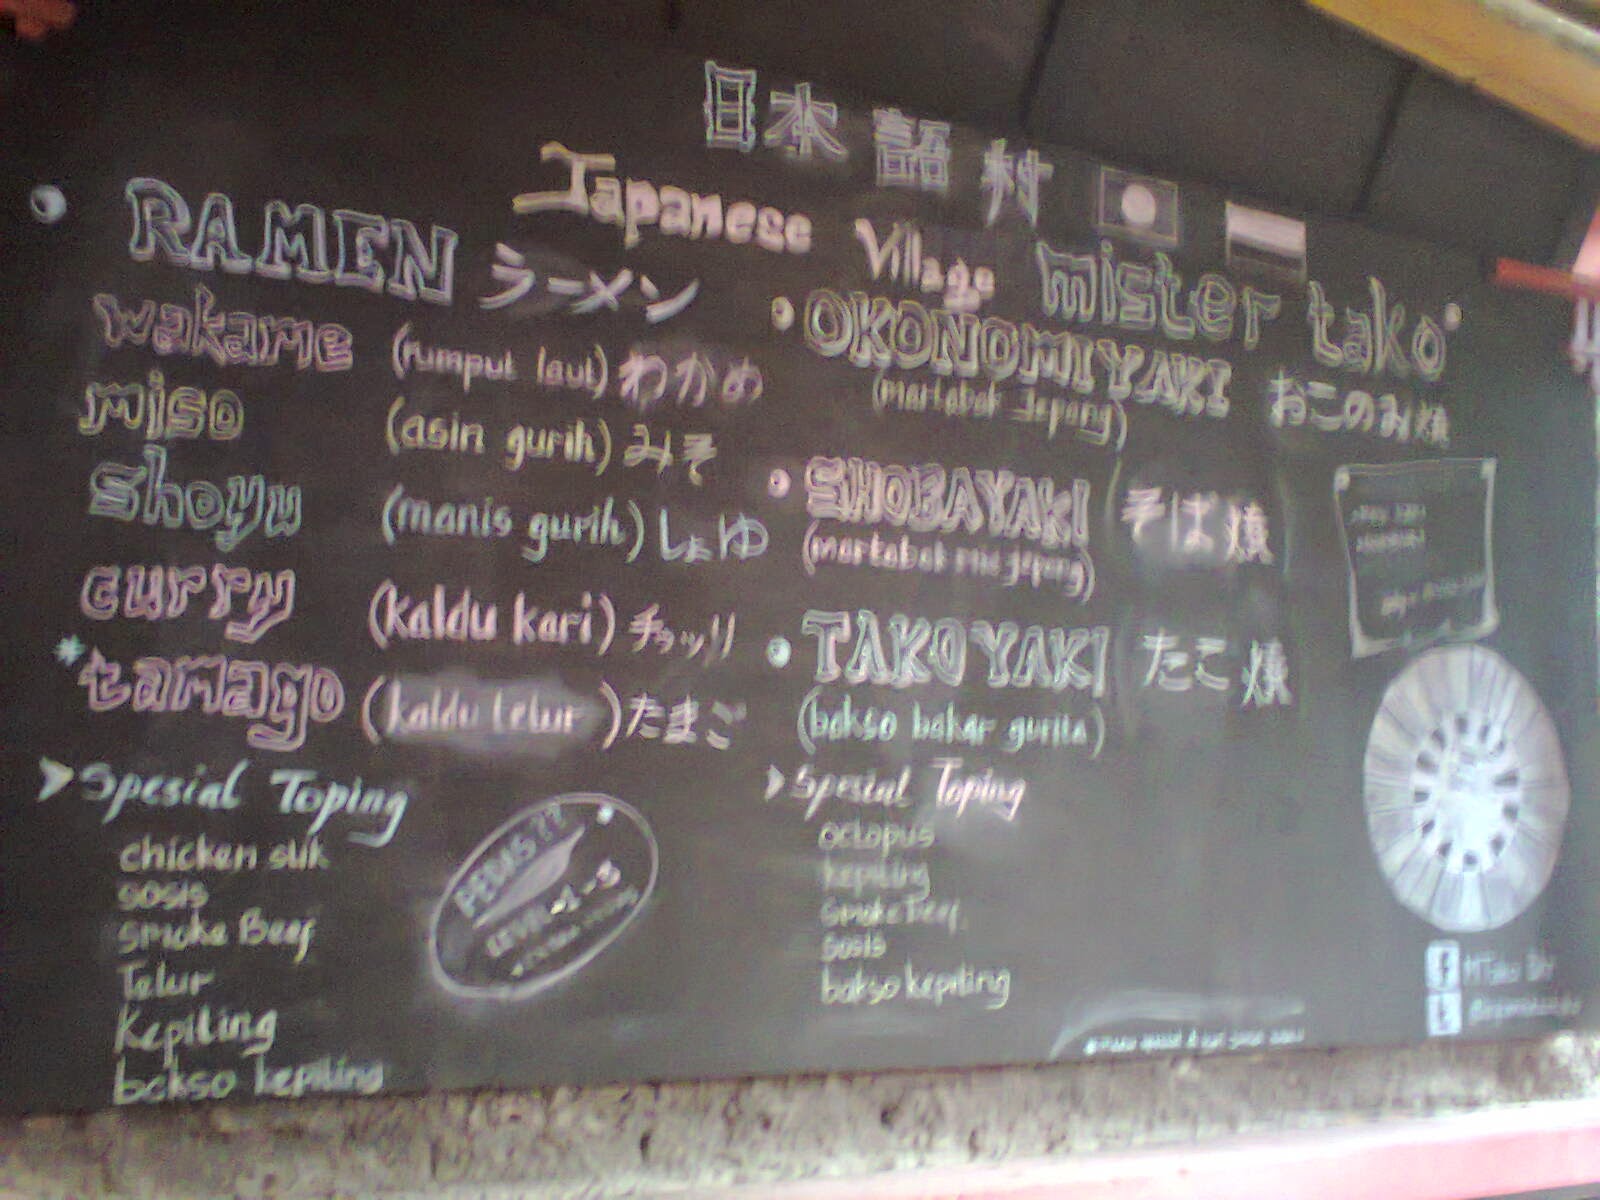 日本語村
Japanese Village
mister tako
RAMEN ラーメン
wakame (rumput laut) わかめ
miso (asin gurih) みそ
shoyu (manis gurih) しょゆ
curry (kaldu kari)
*tamago (kaldu telur) たまご
Spesial Toping
chicken slik
sosis
smoke Beef
Telur
Kepiting
bakso kepiting
PEDAS ??
LEVEL 1-5
OKONOMIYAKI おこのみ焼
(martabak Jepang)
SHOBAYAKI そば焼
(martabak mie jepang)
TAKOYAKI たこ焼
(bakso bakar gurita)
Spesial Toping
octopus
kepiting
smoke Beef
sosis
bakso kepiting